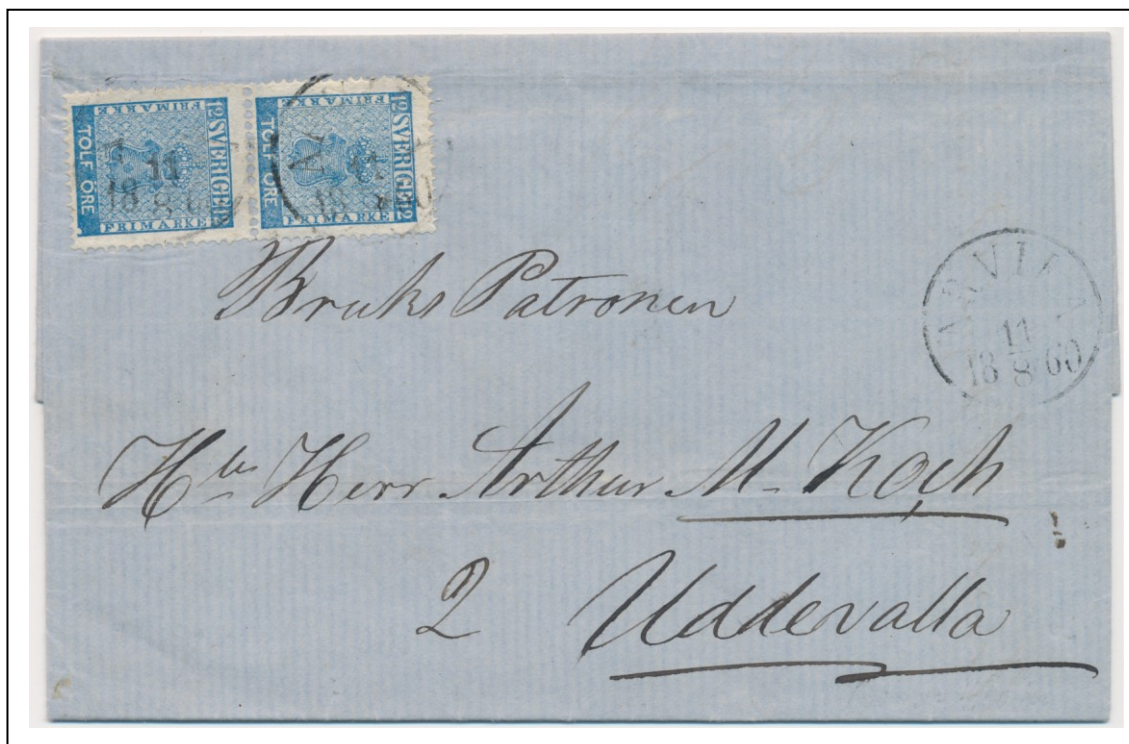 12 SVERIGE 12
FRIMARKE
TOLF ÖRE
FRIMARKE
12 SVERIGE 12
FRIMARKE
TOLF ÖRE
FRIMARKE
11
18 8 60
11
18 8 60
Bruks Patronen
ARVIKA
11
18 8 60
Herr Arthur M Koch
2 Uddevalla